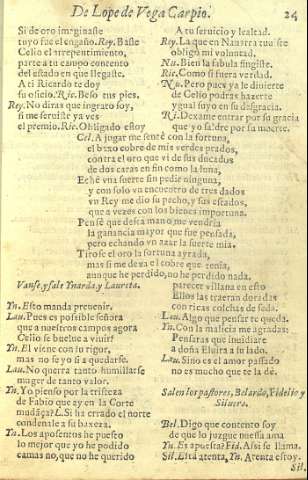 De Lope de Vega Carpio.
24
Si de oro imaginaste
tuyo fue el engaño. Rey. Baste
Celio el arrepentimiento,
parte a tu campo contento
del estado en que llegaste.
A ti Ricardo te doy
su oficio. Ric. Beso tus pies.
Rey. No diras que ingrato soy,
si me seruiste ya ves
el premio. Ric. Obligado estoy
A tu seruicio y lealtad.
Rey. La que en Nauarra tuuiste
obligò mi voluntad.
Nu. Bien la fabula fingiste.
Ric. Como si fuera verdad.
Nu. Pero pues ya le diuierte
de Celio podras hazerte
ygual suyo en su desgracia.
Ri. Dexame entrar por su gracia
que yo saldre por su muerte.
Cel. A jugar me sentè con la fortuna,
el bizco cobre de mis verdes prados,
contra el oro que vi de sus ducados
de dos caras en fin como la luna,
Echè vna suerte sin pedir ninguna,
y con solo vn encuentro de tres dados
vn Rey me dio su pecho, y sus estados,
que a vezes con los bienes importuna.
Pensè que desta mano me vendria
la ganancia mayor que fue pensada,
pero echando vn azar la suerte mia.
Tirose el oro la fortuna ayrada,
mas si me dexa el cobre que tenia,
aunque he perdido, no he perdido nada.
Vanse, y sale Ynarda, y Laureta.
Yn. Esto manda preuenir.
Lau. Pues es possible señora
que a nuestros campos agora
Celio se buelue a viuir?
Yn. El viene con su rigor,
mas no se yo si a quedarse.
Lau. No querra tanto humillarse
muger de tanto valor.
Yn. Yo pienso por la tristeza
de Fabio que ay en la Corte
mudãça? L. Si ha errado el norte
condenale a su baxeza.
Yn. Los aposentos he puesto
lo mejor que yo he podido
camas no, que no he querido
parecer villana en esto
Ellos las traeran doradas
con ricas colchas de seda.
Lau. Algo que pensar te queda.
Yn. Con la malicia me agradas:
Pensaras que inuidiare
a doña Eluira a su lado.
Lau. Sino es el amor passado
no es mucho que te la dè.
Salen los pastores, Belardo, Fidelio y
Siluero.
Bel. Digo que contento soy
de que lo juzgue nuessa ama
Yn. Es apuesta? Fid. Assi se llama.
Sil. Està atenta, Yn. Atenta estoy.
Sil.